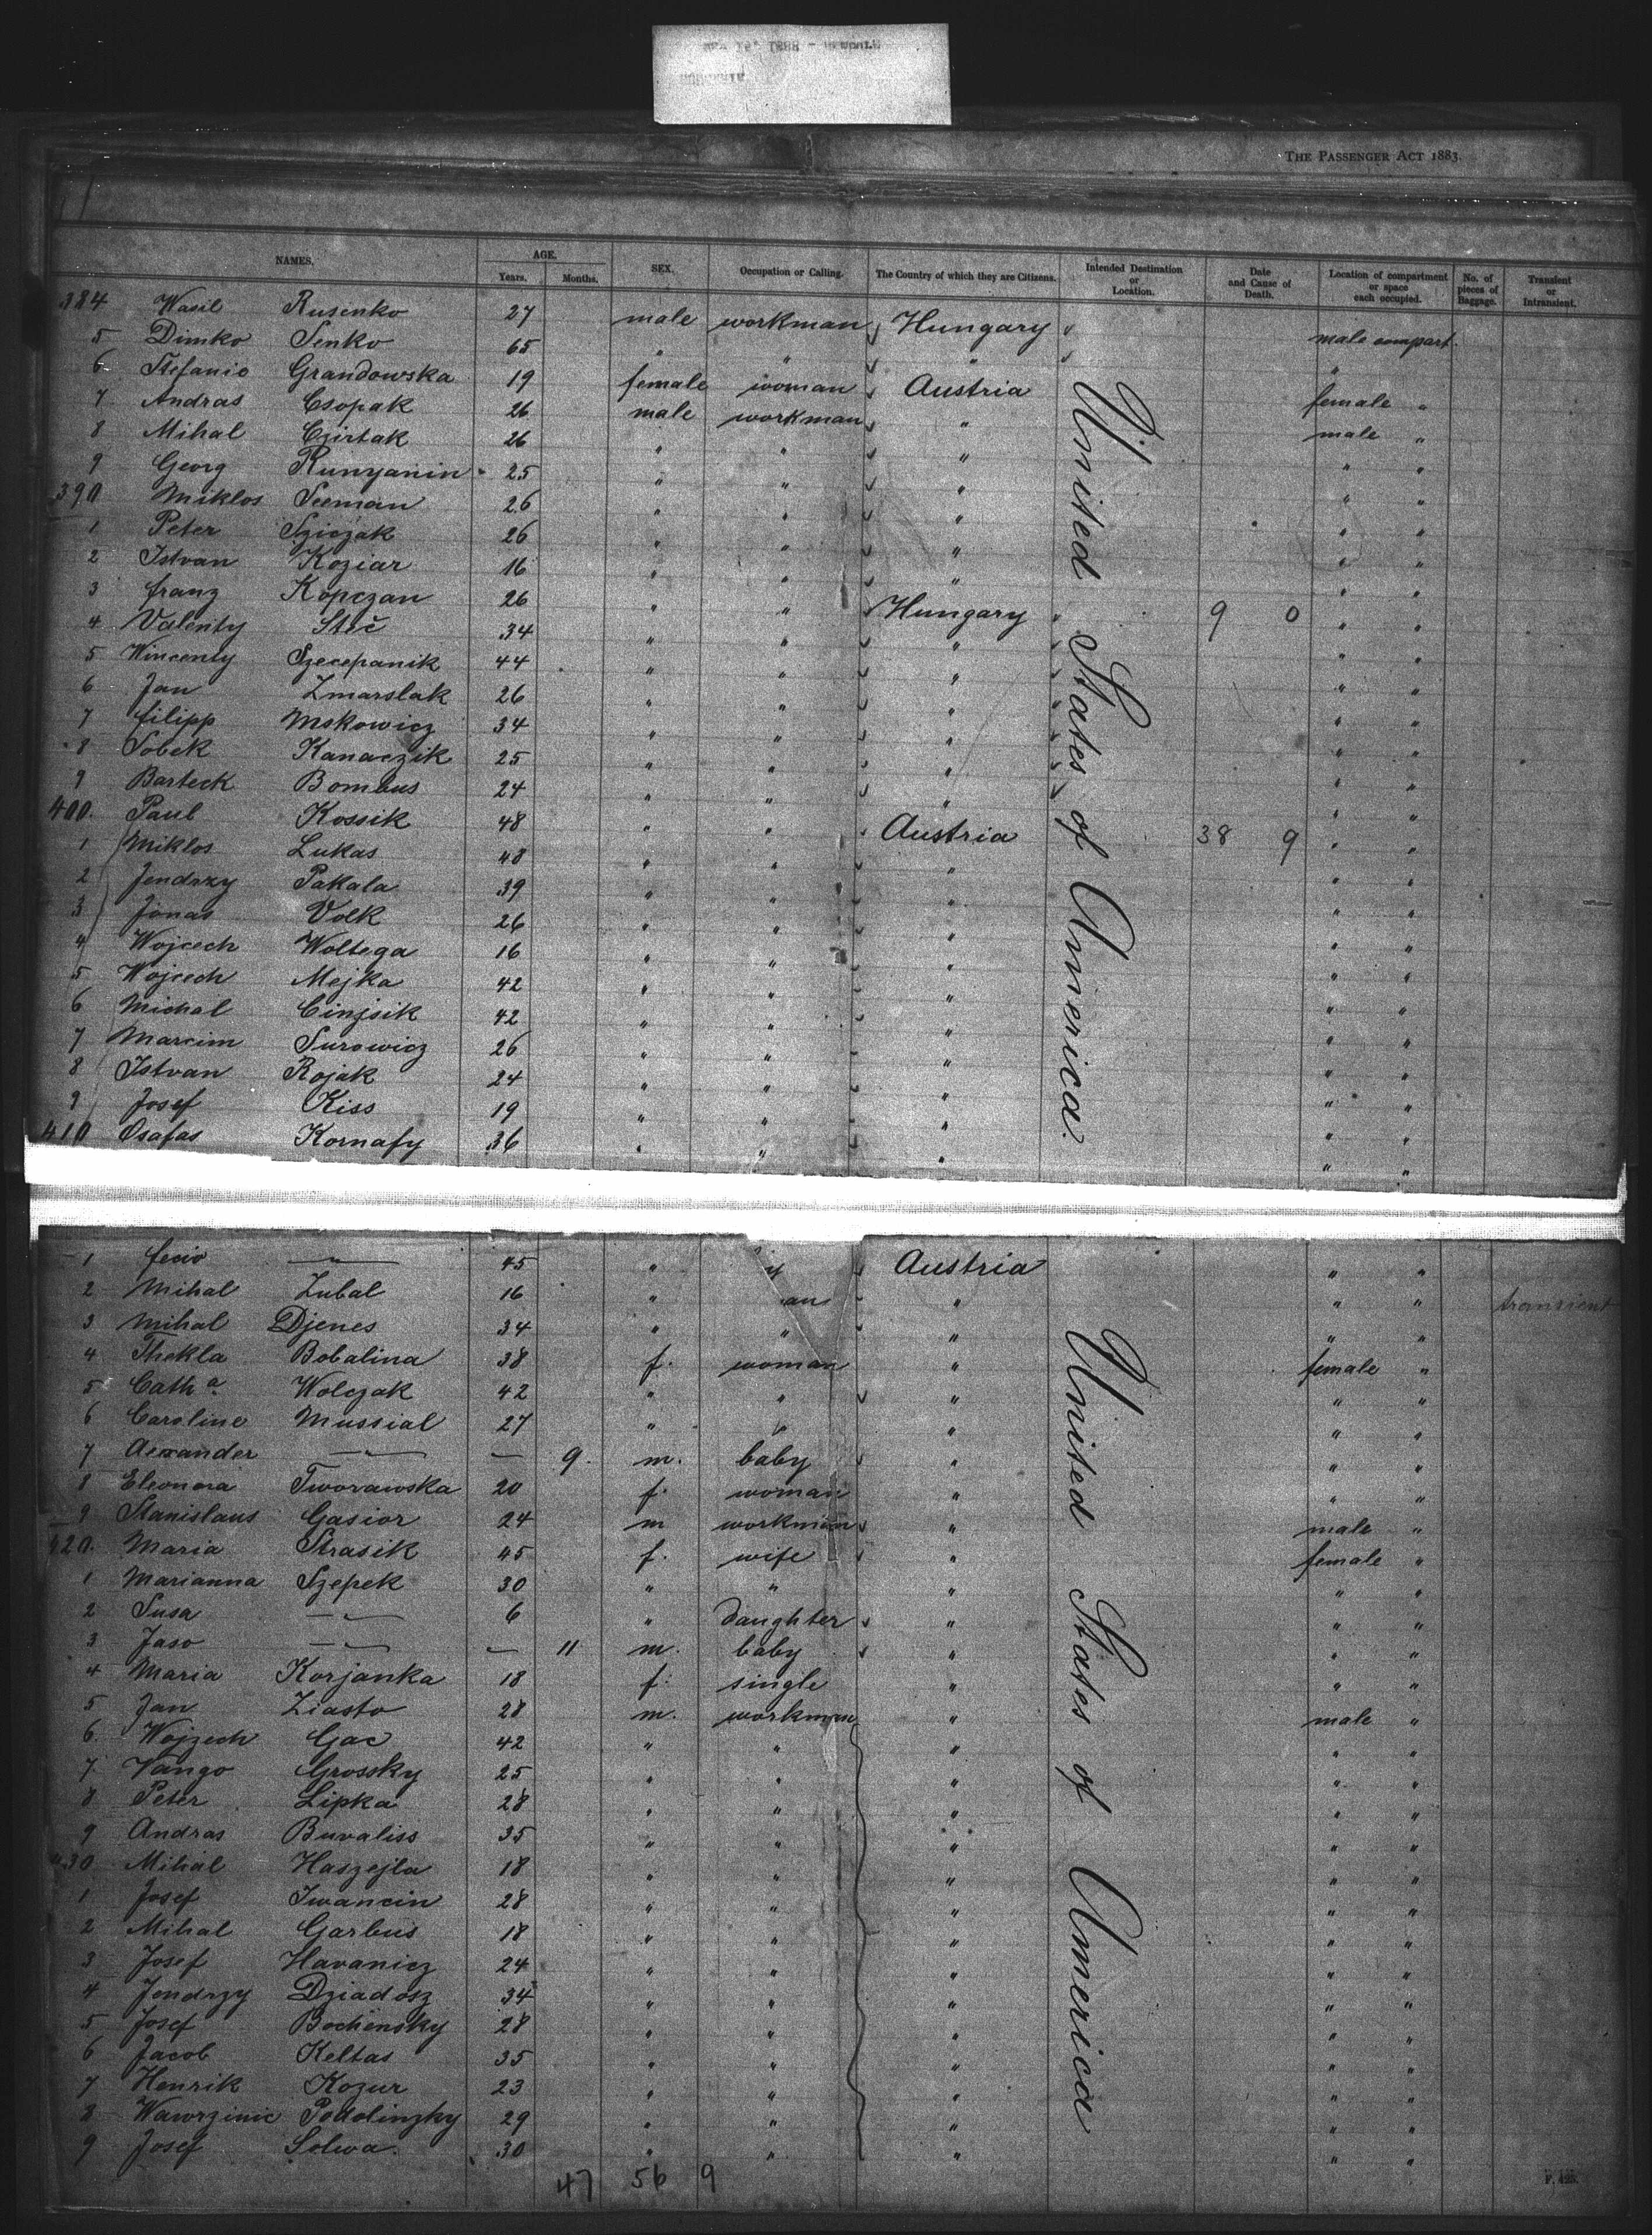 THE PASSENGER ACT 1883.
NAMES. AGE. SEX. Occupation or Calling. The Country of which they are Citizens. Intended Destination or Location. Date and Cause of Death. Location of compartment or space each occupied. No. of pieces of Baggage. Transient or Intransient.
Years. Months.
384 Wasil Rusinko 27 male workman Hungary male compart.
5 Dimko Senko 65 " " " "
6 Stefanie Grandowska 19 female woman Austria female "
7 Andras Csopak 26 male workman " male "
8 Mihal Czirtak 26 " " " " "
9 Georg Runyanin 25 " " " " "
390 Miklos Seeman 26 " " " " "
1 Peter Sziczak 26 " " " " "
2 Istvan Koziar 16 " " " " "
3 Franz Kopczan 26 " " Hungary 9 0 " "
4 Valenty Stec 34 " " " " "
5 Wincenty Szecepanik 44 " " " " "
6 Jan Zmarslak 26 " " " " "
7 Filipp Mskowicz 34 " " " " "
8 Sobek Kanaczik 25 " " " " "
9 Barteck Bombus 24 " " " " "
400. Paul Kossik 48 " " Austria 38 9 " "
1 Miklos Lukas 48 " " " " "
2 Jendrzy Pakala 39 " " " " "
3 Jonas Volk 26 " " " " "
4 Wojcech Woltega 16 " " " " "
5 Wojcech Mejka 42 " " " " "
6 Michal Cinjsik 42 " " " " "
7 Marcim Surowicz 26 " " " " "
8 Istvan Rojak 24 " " " " "
9 Josef Kiss 19 " " " " "
410 Osafas Kornafy 36 " " " " "
United States of America.
1 Fecio " 45 " " Austria " "
2 Mihal Zubal 16 " an " " " transient
3 Mihal Djenes 34 " " " " "
4 Thekla Bobalina 38 f. woman " female "
5 Catha Wolczak 42 " " " " "
6 Caroline Mussial 27 " " " " "
7 Aexander " — 9. m. baby " " "
8 Eleonora Tworawska 20 f. woman " " "
9 Stanislaus Gasior 24 m workman " male "
420. Maria Strasik 45 f. wife " female "
1 Marianna Szepek 30 " " " " "
2 Susa " 6 " daughter " " "
3 Jaso " — 11 m. baby " " "
4 Maria Korjanka 18 f. single " " "
5 Jan Ziasto 28 m. workman " male "
6 Wojzech Gac 42 " " " " "
7 Vango Grossky 25 " " " " "
8 Peter Lipka 28 " " " " "
9 Andras Buvaliss 35 " " " " "
430 Mihal Haszejla 18 " " " " "
1 Josef Iwancin 28 " " " " "
2 Mihal Garbus 18 " " " " "
3 Josef Havanicz 24 " " " " "
4 Jendrzy Dziadosz 34 " " " " "
5 Josef Bochensky 28 " " " " "
6 Jacob Keltas 35 " " " " "
7 Henrik Kozur 23 " " " " "
8 Wawrzinic Podolinzky 29 " " " " "
9 Josef Solwa. 30 " " " " "
United States of America
47 56 9
F. 425.